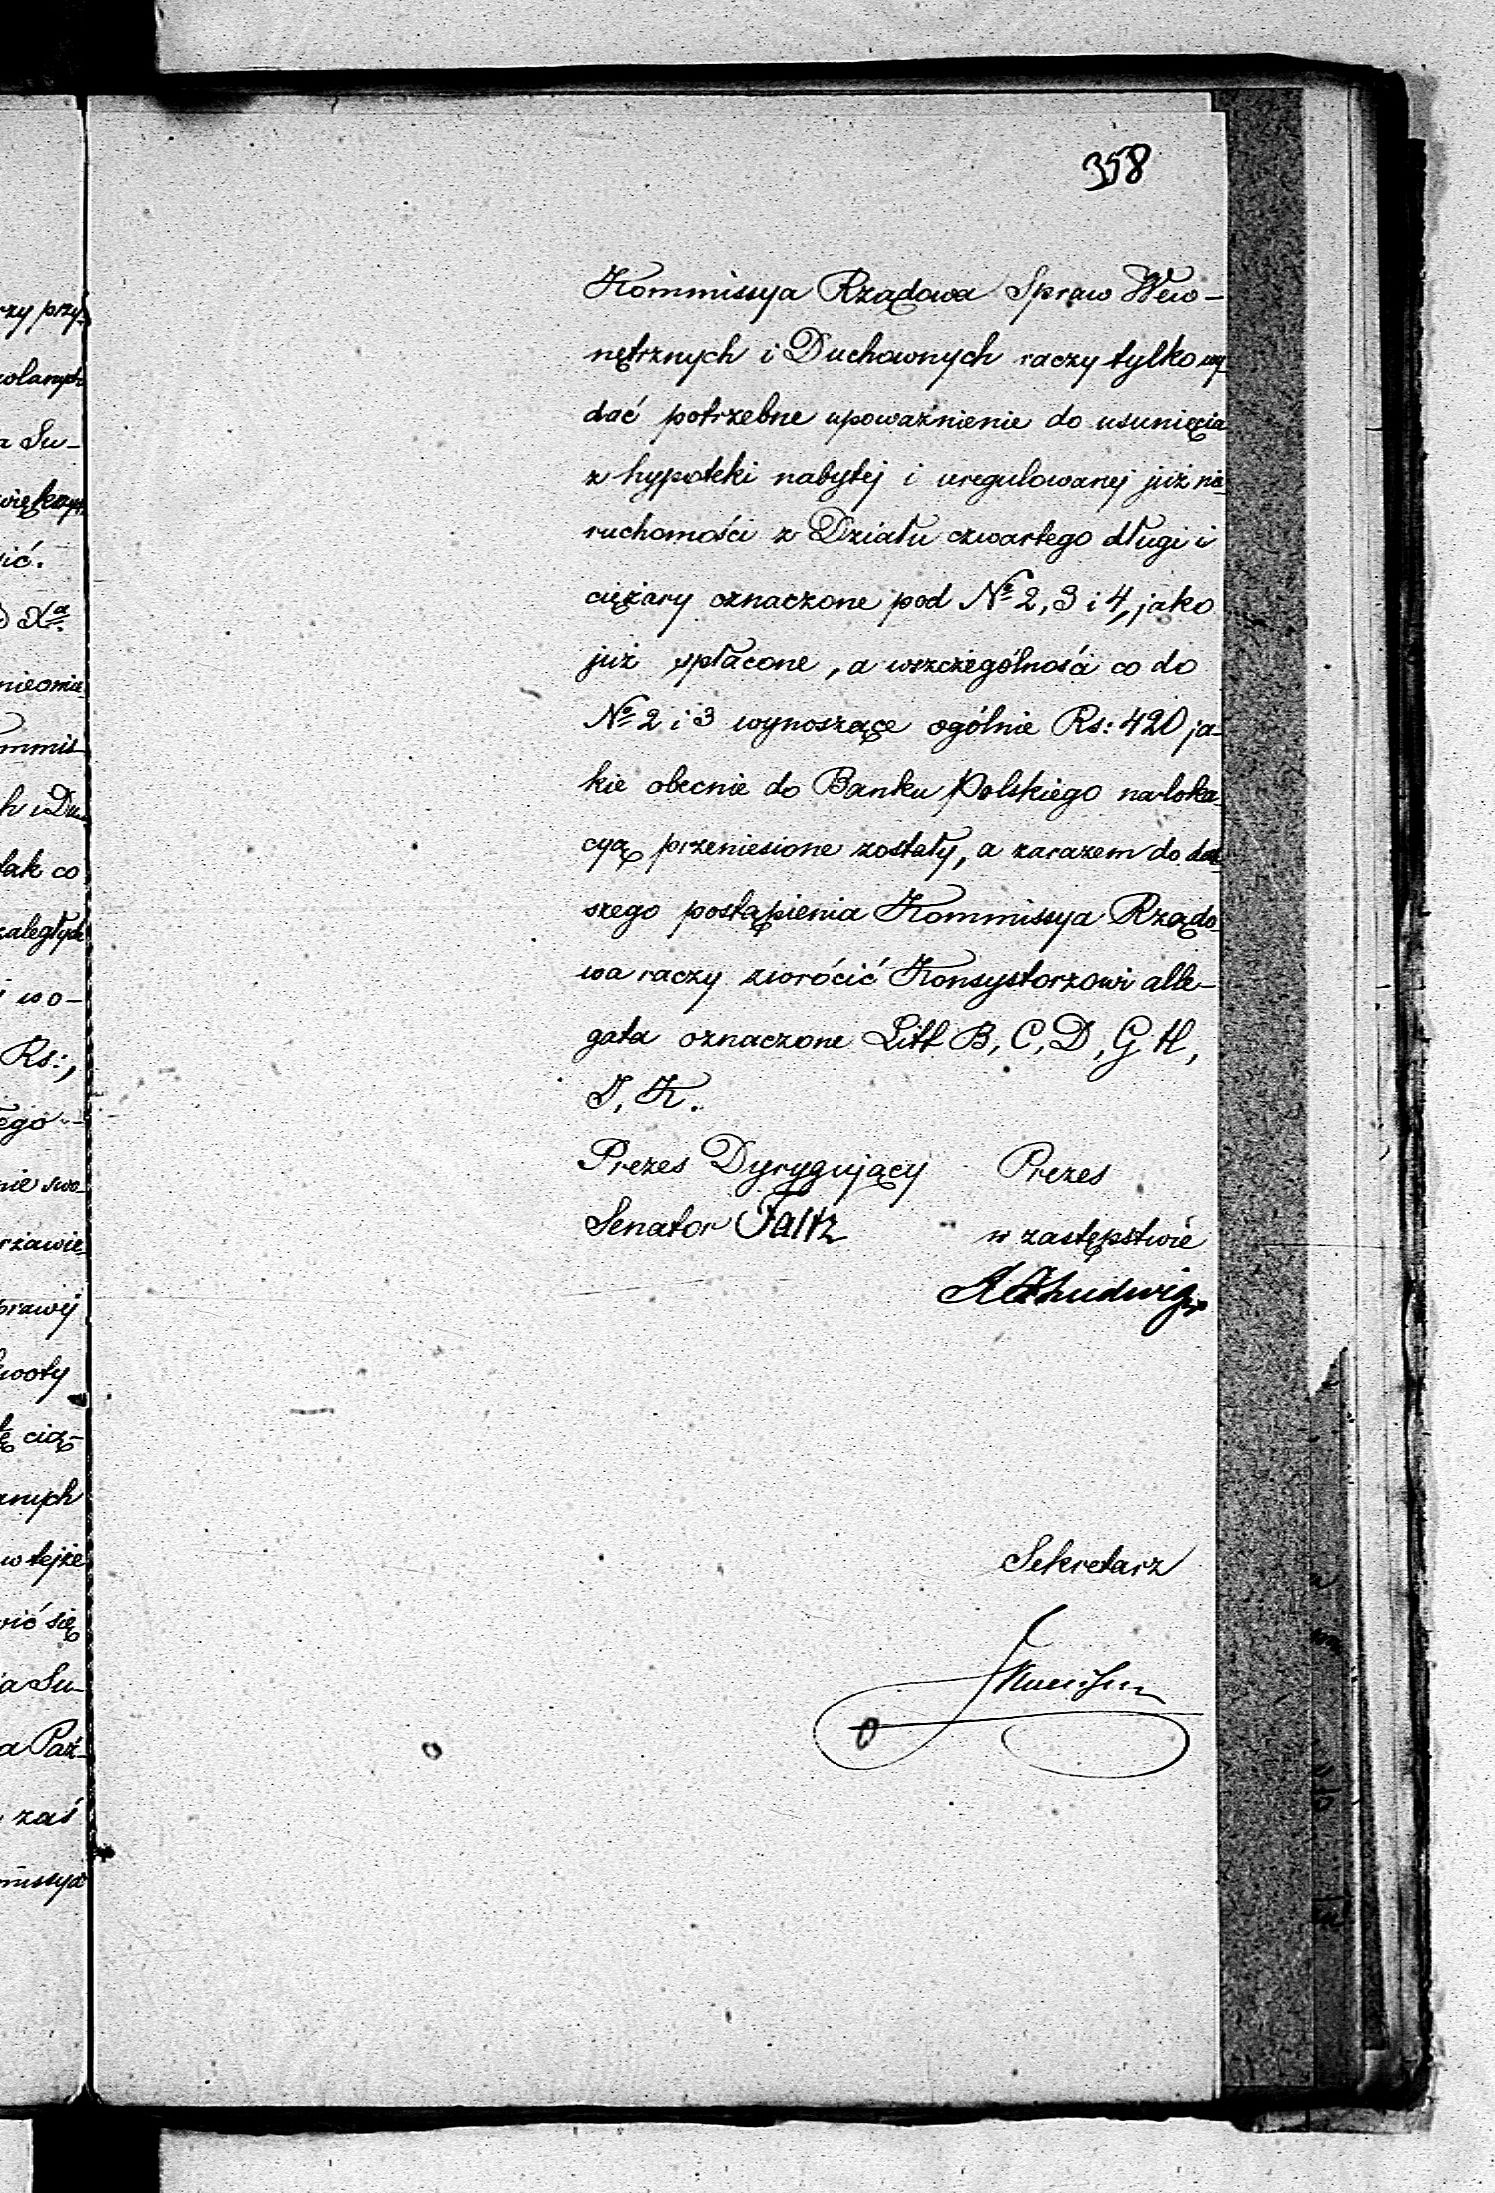 358
Kommissya Rządowa Spraw Wew-
nętrznych i Duchownych raczy tylko wy-
dać potrzebne upoważnienie do usunięcia
z hypoteki nabytej i uregulowanej już nie-
ruchomości z Działu czwartego długi i
ciężary oznaczone pod № 2, 3 i 4, jako
już spłacone, a wszczególności co do
№ 2 i 3 wynoszące ogólnie Rs: 420 ja-
kie obecnie do Banku Polskiego na loka-
cyą przeniesione zostały, a zarazem do dal-
szego postąpienia Kommissya Rządo-
wa raczy zwrócić Konsystorzowi alle-
gata oznaczone Litt. B, C, D, G, H,
J, K.
Prezes Dyrygujący Prezes
Senator Faltz w zastępstwie
Ludwig
Sekretarz
rzy przy-
a Su-
ić.
Xa
nieomie-
ommis-
h i Du-
tak co
zaległych
i wo-
Rs:,
ego
nie swo-
prawej
kwoty
ę cią-
w tejże
wić się
ia Su-
a Paź-
zaś
missya